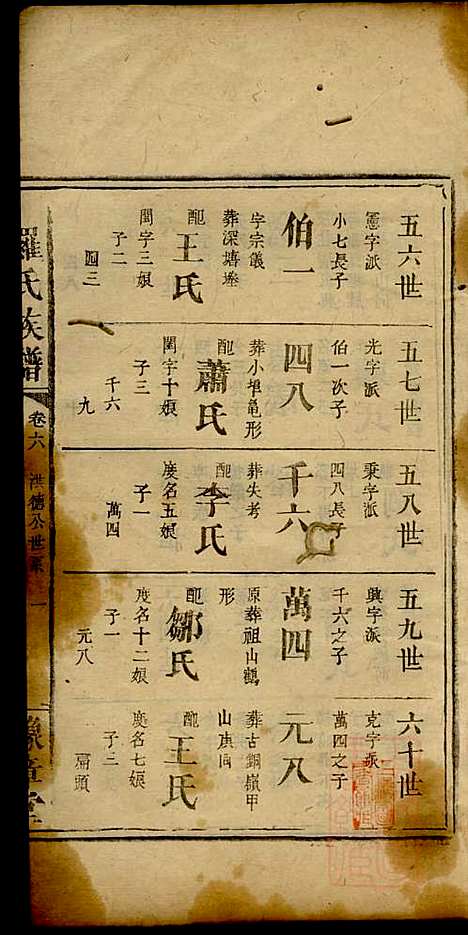 五六世
憲字派
小七長子
伯一
字宗儀
葬深塘埀
配
王氏
閏字三娘
子二
四三
五七世
光字派
伯一次子
四八
葬小埠龟形
配
蕭氏
閏字十娘
子三
千六
九
五八世
秉字派
四八長子
千六
葬失考
配
李氏
度名五娘
子一
萬四
五九世
興字派
千六之子
萬四
原葬祖山觀
形
配
鄒氏
度名十二娘
子一
元八
六十世
克字派
萬四之子
元八
葬古銅嶺甲
山庚同
配
王氏
度名七娘
子三
扇頭
羅氏族譜
卷六
洪德公世系
一
豫章堂